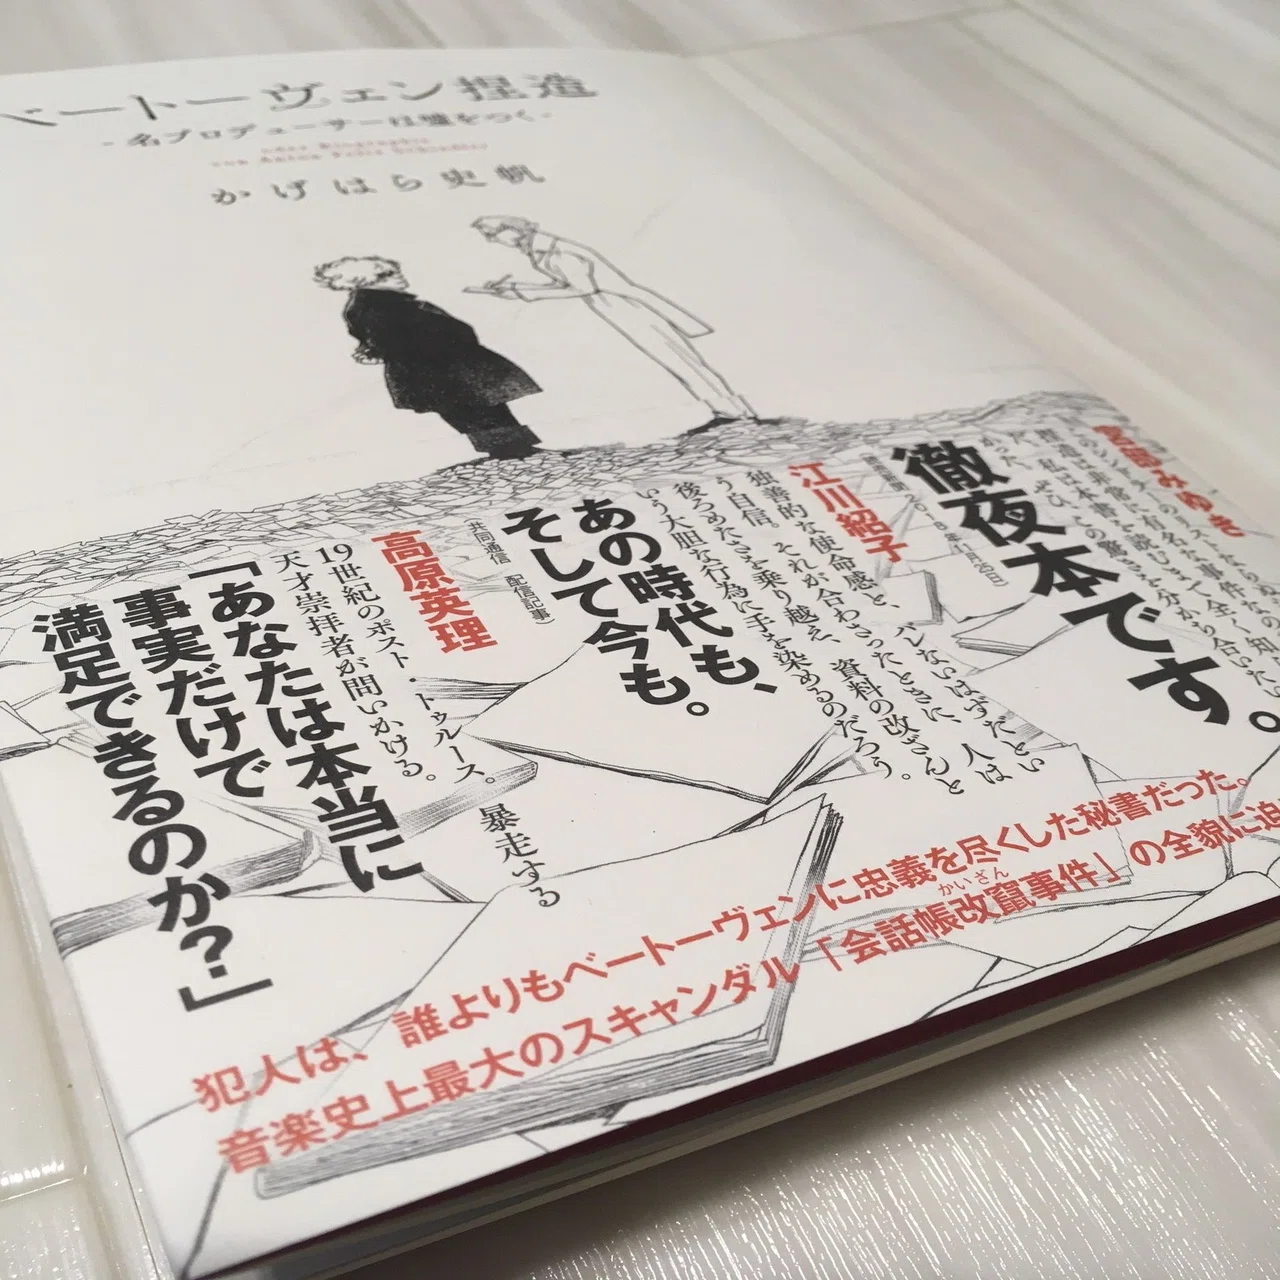 ベートーヴェン捏造
-名プロデューサーは嘘をつく-
oder Biographie
von Anton Felix Schindler
かげはら史帆
宮部みゆき
シンドラーのリストならぬ
捏造は非常に有名な事件なの
だ。私は本書を読むまで全く知ら
なかった。ぜひ、この驚きを分かち合いたい
徹夜本です。
2018年11月20日)
江川紹子
独善的な使命感と、バレないはずだとい
う自信。それが合わさったときに、人は
後ろめたさを乗り越え、資料の改ざんと
いう大胆な行為に手を染めるのだろう。
あの時代も、
そして今も。
共同通信 配信記事)
高原英理
19世紀のポスト・トゥルース。暴走する
天才崇拝者が問いかける。
「あなたは本当に
事実だけで
満足できるのか?」
犯人は、誰よりもベートーヴェンに忠義を尽くした秘書だった。
音楽史上最大のスキャンダル「会話帳改竄事件」の全貌に迫
かいざん